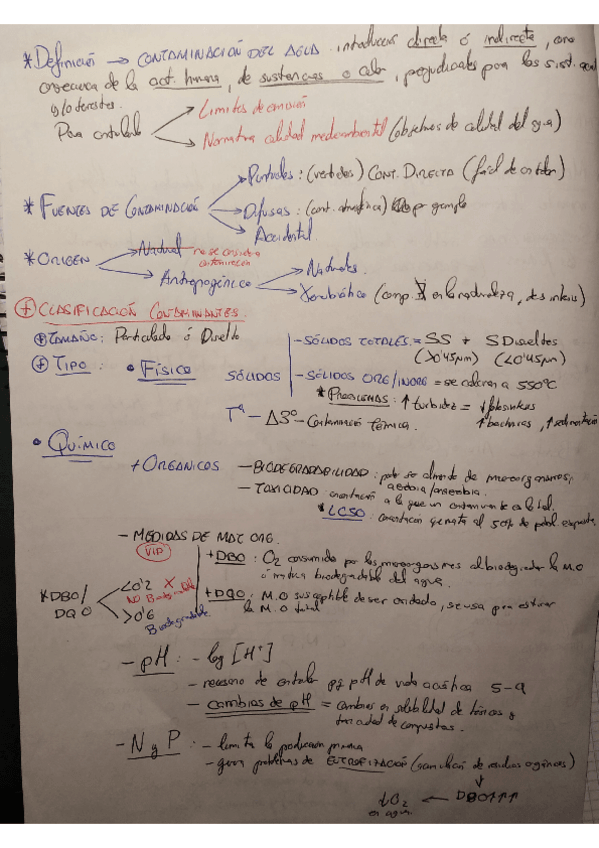 * Definición → CONTAMINACIÓN DEL AGUA introducción directa ó indirecta, como
consecuencia de la act. humana, de sustancias o calor, perjudiciales para los sist. acuat
y/o terrestres.
Para controlarlo
Límites de emisión
Normativa calidad medioambiental (objetivos de calidad del agua)
* FUENTES DE CONTAMINACIÓN
Puntuales: (vertidos) CONT. DIRECTA (fácil de controlar)
Difusas: (cont. atmosférica) por ejemplo
Accidental
* ORIGEN
Natural no se considera contaminación
Antropogénico
Naturales.
Xenobiótico (comp. en la naturaleza, des interés)
+ CLASIFICACIÓN CONTAMINANTES.
+ TAMAÑO: Particulado ó Disuelto
+ TIPO: • FÍSICO
SÓLIDOS
- SÓLIDOS TOTALES = SS + S Disueltos
(>0'45μm) (<0'45μm)
- SÓLIDOS ORG/INORG = se calcinan a 550ºC
* PROBLEMAS: ↑ turbidez = ↓ fotosíntesis
↑ bacterias, ↑ sedimentación
Tª - Δ3º - Contaminació Térmica.
• QUÍMICO
+ ORGÁNICOS
- BIODEGRADABILIDAD: puede ser alimento de microorganismos,
aerobia/anaerobia.
- TOXICIDAD: concentració a la que un contaminante es letal.
* LC50: concentracion que mata al 50% de pobl. expuesta.
- MEDIDAS DE MAT. ORG.
VIP
+ DBO: O2 consumido por los microorganismos al biodegradar la M.O
ó mática biodegradable del agua.
+ DQO: M.O susceptible de ser oxidado, se usa para estimar
la M.O total
* DBO/DQO
<0'2 X NO Biodegradable
>0'6 Biodegradable
- pH: - log [H+]
- necesario de controlar pq pH de vida acuática 5-9
- cambios de pH = cambios en solubilidad de tóxicos y
toxicidad de compuestos.
- N y P: - limita la producción primaria
- genera problemas de EUTROFIZACIÓN (acumulación de residuos orgánicos)
↓
↓O2 ← DBO↑↑↑
en agua.